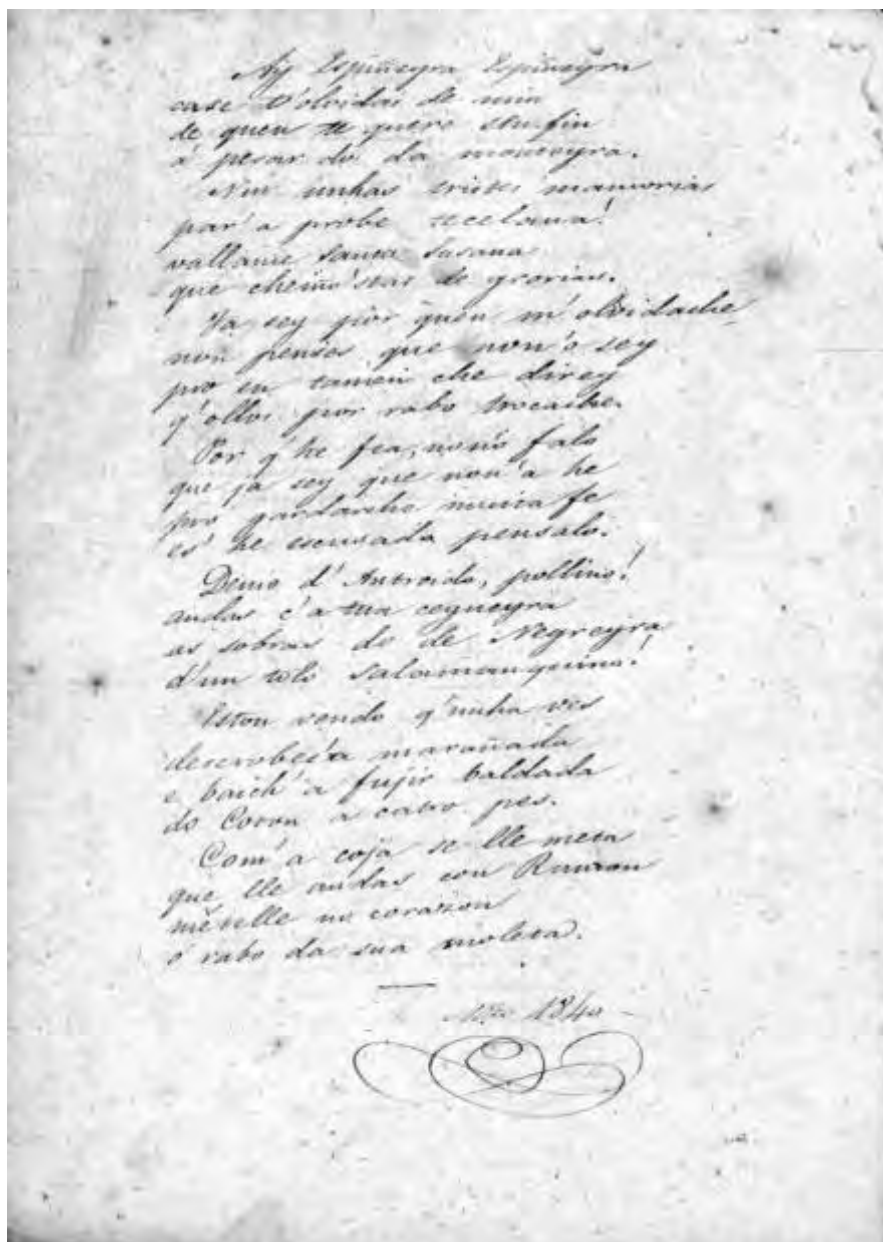 Ay Espiñeyra Espiñeyra
case t'olvidas de min
de quen te quere sen fin
a pesar do da monteyra.
Nin unhas tristes mamorias
par'a probe recelana!
vallame santa Susana
que cheiñ'seas de grorias.
Ya sey por quen m'olvidache
non penses que non'o sey
pro eu tamen che direy
q'ollos por rabo trocache.
Por q'he fea, non o falo
que ja sey que non'a he
pro gardarche nunca fe
es' he escusada pensalo.
Demo d'Antroido, pollino!
andas c'a tua cegueyra
as sobras do de Negreyra
d'un tolo salamanquino!
Estou vendo q'nunha ves
descrobes'a marañada
e baich'a fujir baldada
do Coron a catro pes.
Com'a coja se lle meta
que lle andas con Ramon
mételle no corazon
o rabo da sua moleta.
Año 1840